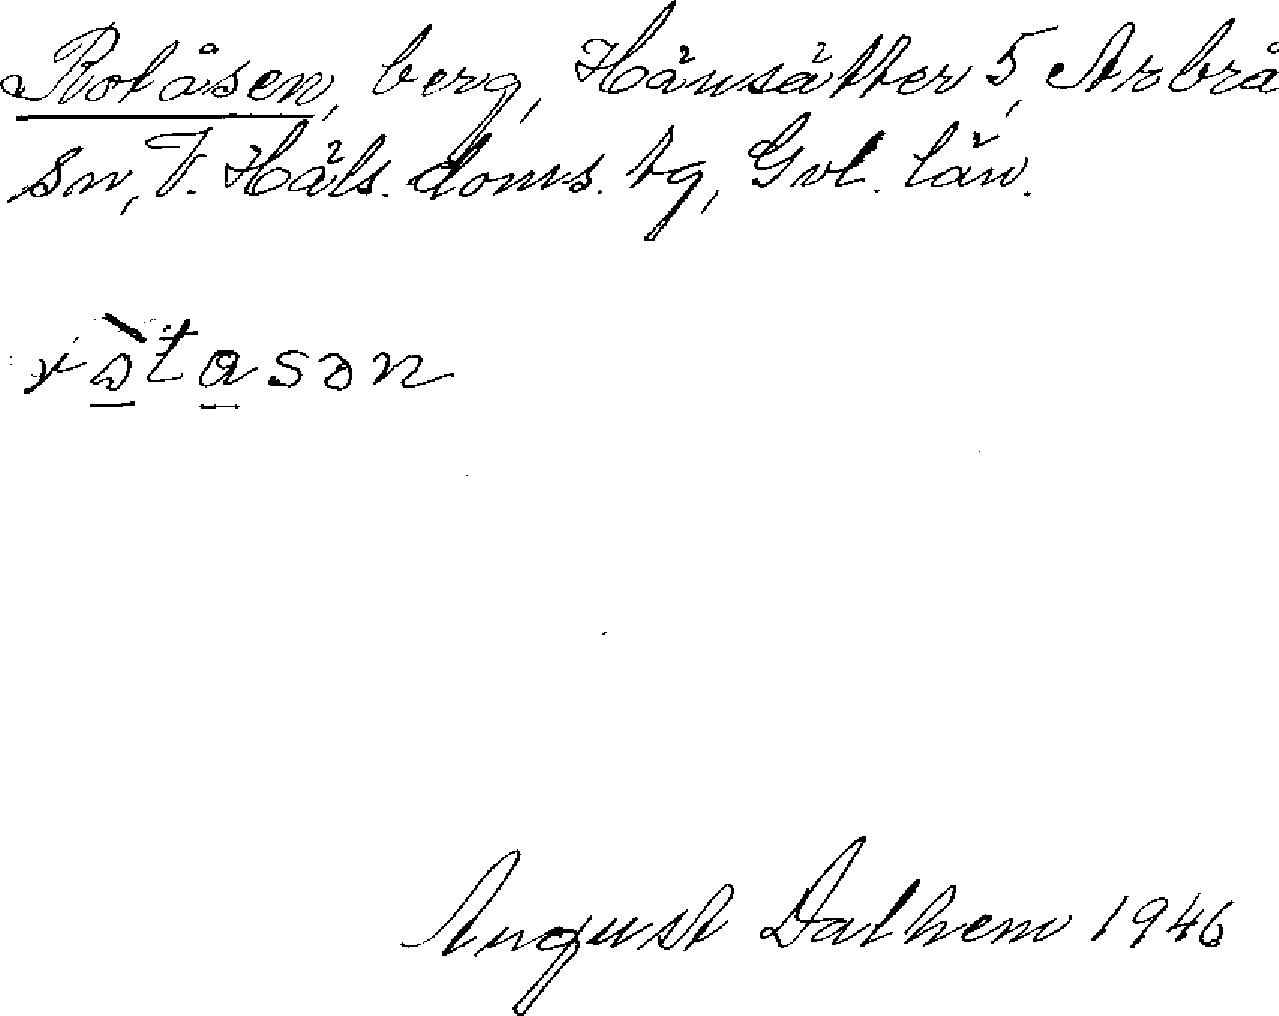 Rotåsen, berg, Hänsätter 5, Arbrå
sn, V. Häls. doms. tg, Gvl. län.
August Dalhem 1946